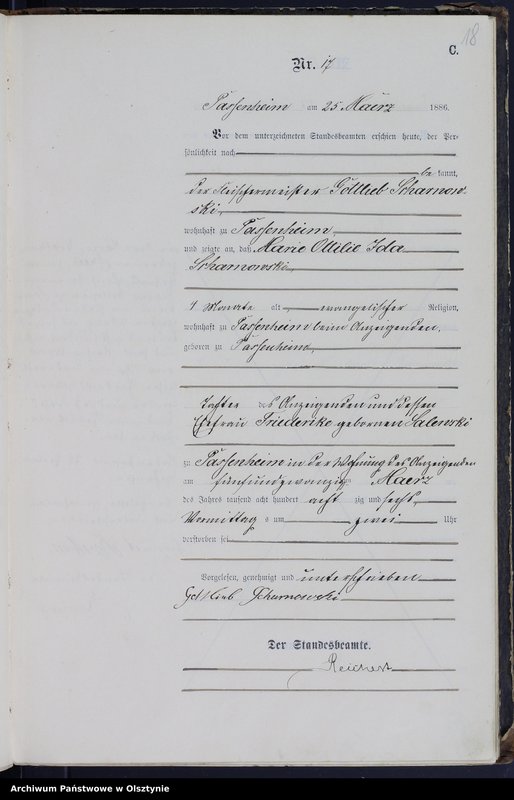 18
C.
Nr. 17
Passenheim am 25 Maerz 1886.
Vor dem unterzeichneten Standesbeamten erschien heute, der Per-
sönlichkeit nach
be kannt,
der Fleischermeister Gottlieb Scharnow-
ski,
wohnhaft zu Passenheim,
und zeigte an, daß Marie Ottilie Ida
Scharnowski,
4 Monate alt, evangelischer Religion,
wohnhaft zu Passenheim beim Anzeigenden,
geboren zu Passenheim,
Tochter des Anzeigenden und dessen
Ehefrau Friederike gebornen Salewski
zu Passenheim in der Wohnung des Anzeigenden
am fünfundzwanzigsten Maerz
des Jahres tausend acht hundert acht zig und sechs,
Vormittag s um zwei Uhr
verstorben sei
Vorgelesen, genehmigt und unterschrieben
Gottlieb Scharnowski
Der Standesbeamte.
Reichert
Archiwum Państwowe w Olsztynie